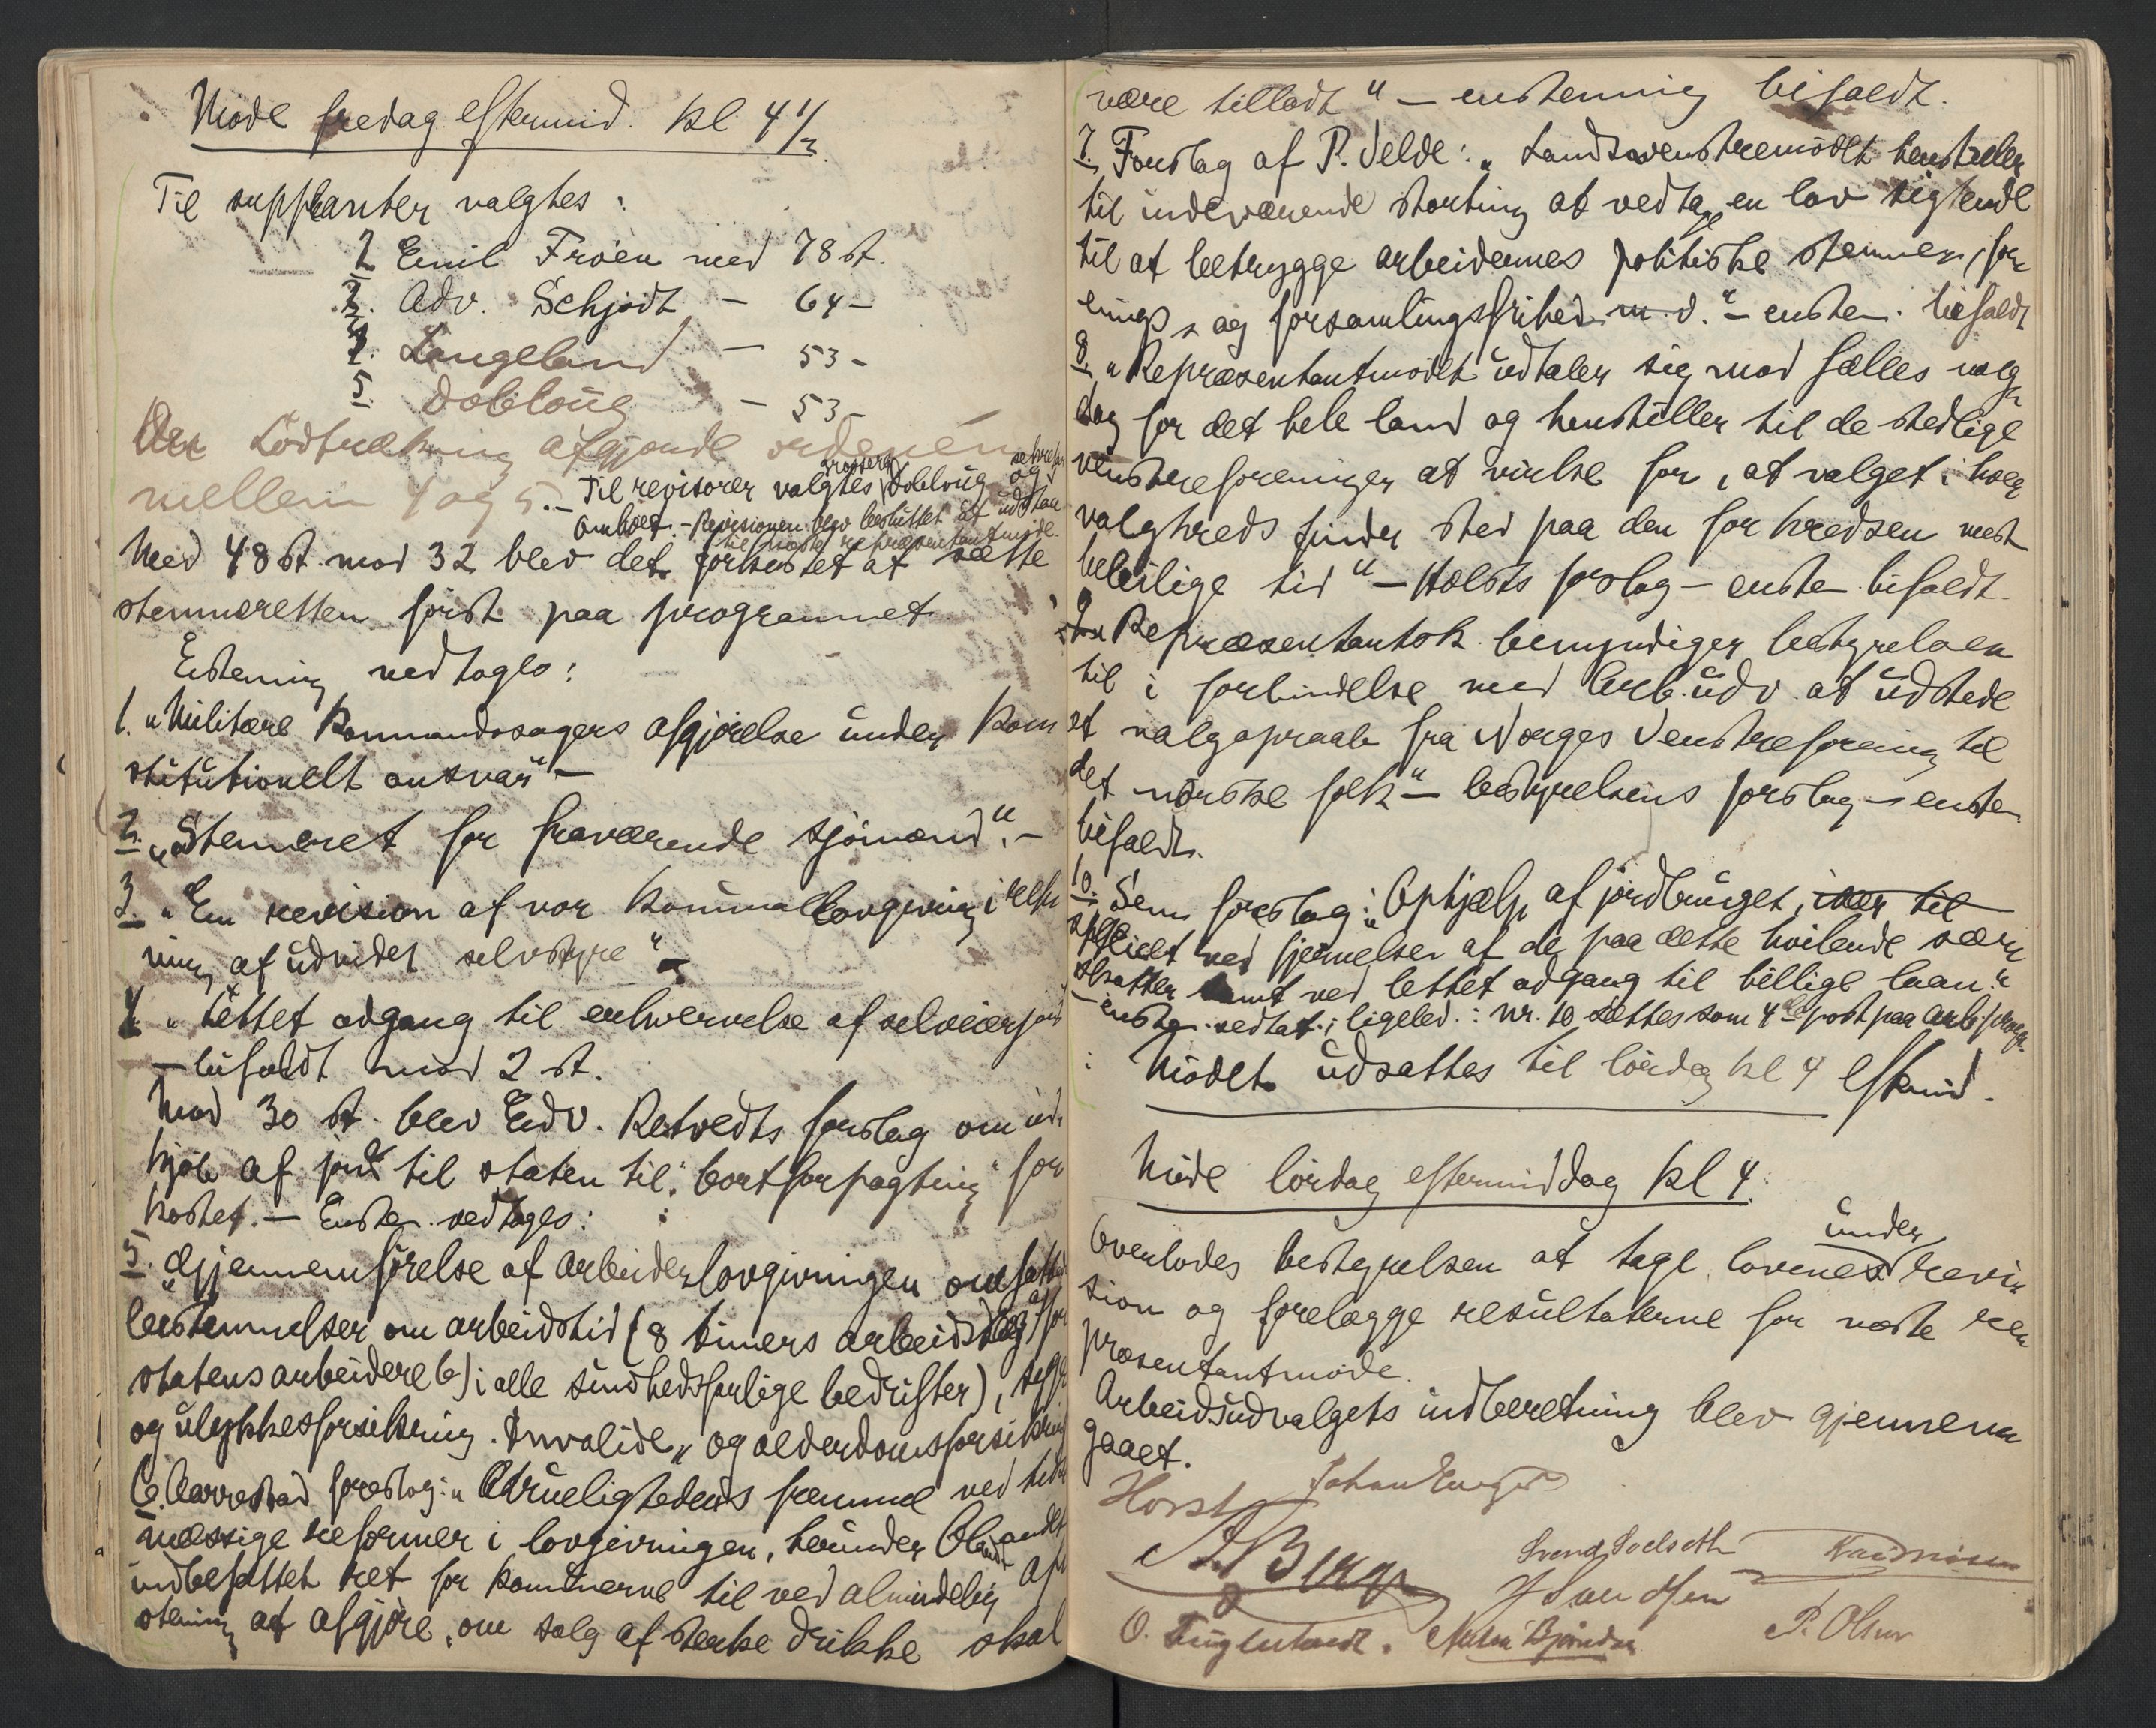 Møde fredag eftermid. kl 4 1/2.
Til supplanter valgtes:
2 Emil Frøen med 78 st.
3. Adv. Schjødt - 64 -
4. Langeland - 53 -
5. Dobloug - 53 -
Lodtrækning afgjorde ordenen
mellem 4 og 5. - Til revisorer valgtes grosserer Dobloug og
Omholt. - Revisionen blev besluttet at
til næste repræsentantmøde.
Med 48 st. mod 32 blev det forkastet at sætte
stemmeretten først paa programmet
Enstemmig vedtoges:
1. "Militære Kommandosagers afgjørelse under kon
stitutionelt ansvar" -
2. "Stemmeret for fraværende sjømænd". -
3. "En revision af vor Kommunallovgivning i retn
ning af udvidet selvstyre" -
4. "Lettet adgang til erhvervelse af selveierjord"
- bifaldt mod 2 st.
Mod 30 st. blev Edv. Retvedts forslag om ind-
kjøb af jord til staten til "bortforpagtning" for
kastet. - Enstem. vedtoges:
5. "Gjennemførelse af arbeiderlovgivningen omfattende
bestemmelser om arbeidstid (8 timers arbeidsdag a) for
statens arbeidere b) i alle sundhedsfarlige bedrifter), syge
og ulykkesforsikring. Invalide- og alderdomsforsikring
6. Aarrestad forslag: "Ædruelighedens fremme ved tids
mæssige reformer i lovgivningen, herunder blandt andet
indbefattet ret for kommunerne til ved almindelig af
stemning at afgjøre, om salg af stærke drikke skal
være tilladt" - enstemmig bifaldt.
7. Forslag af P. Velde: "Landsvenstremødet henstiller
til indeværende storting at vedta en lov sigtende
til at betrygge arbeidernes politiske stemme-, for
enings- og forsamlingsfrihed m. v." - enstem. bifaldt
8. "Repræsentantmødet udtaler sig mod fælles valg
dag for det hele land og henstiller til de stedlige
venstreforeninger at virke for, at valget i hver
valgkreds finder sted paa den for kredsen mest
beleilige tid" - Holsts forslag - enstem. bifaldt.
9. Repræsentantsk. bemyndiger bestyrelsen
til i forbindelse med Arb.udv. at udstede
et valgopraab fra Norges Venstreforening til
det norske folk" - bestyrelsens forslag - enstem.
bifaldt.
10. Sems forslag: "Ophjælp af jordbruget, især til
specielt ved fjernelsen af de paa dette hvilende sær
skatter samt ved lettet adgang til billige laan."
- enstem. vedtat; ligeled.: nr. 10 sættes som 4de post paa Arb.progr.
Mødet udsattes til lørdag kl 4 eftermid.
Møde lørdag eftermiddag kl 4.
Overlodes bestyrelsen at tage lovene under revi
sion og forelægge resultaterne for næste re
præsentantmøde.
Arbeidsudvalgets indberetning blev gjennem
gaaet.
Horst Johan Enger
A. Berge Svend Soelseth Rasmussen
J Svendsen
O. P. Olsen